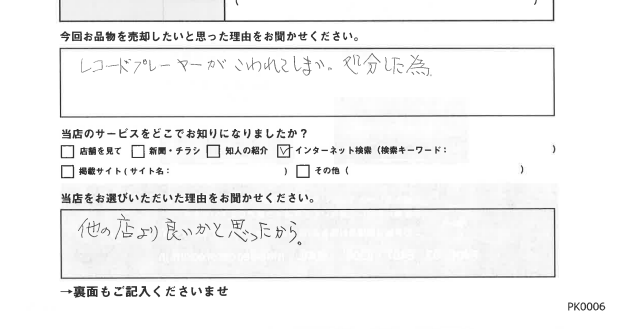 ( )
今回お品物を売却したいと思った理由をお聞かせください。
レコードプレーヤーがこわれてしまい。処分した為
当店のサービスをどこでお知りになりましたか？
□ 店舗を見て □ 新聞・チラシ □ 知人の紹介 ☑ インターネット検索（検索キーワード： ）
□ 掲載サイト（サイト名： ） □ その他（ ）
当店をお選びいただいた理由をお聞かせください。
他の店より良いかと思ったから。
→裏面もご記入くださいませ
PK0006